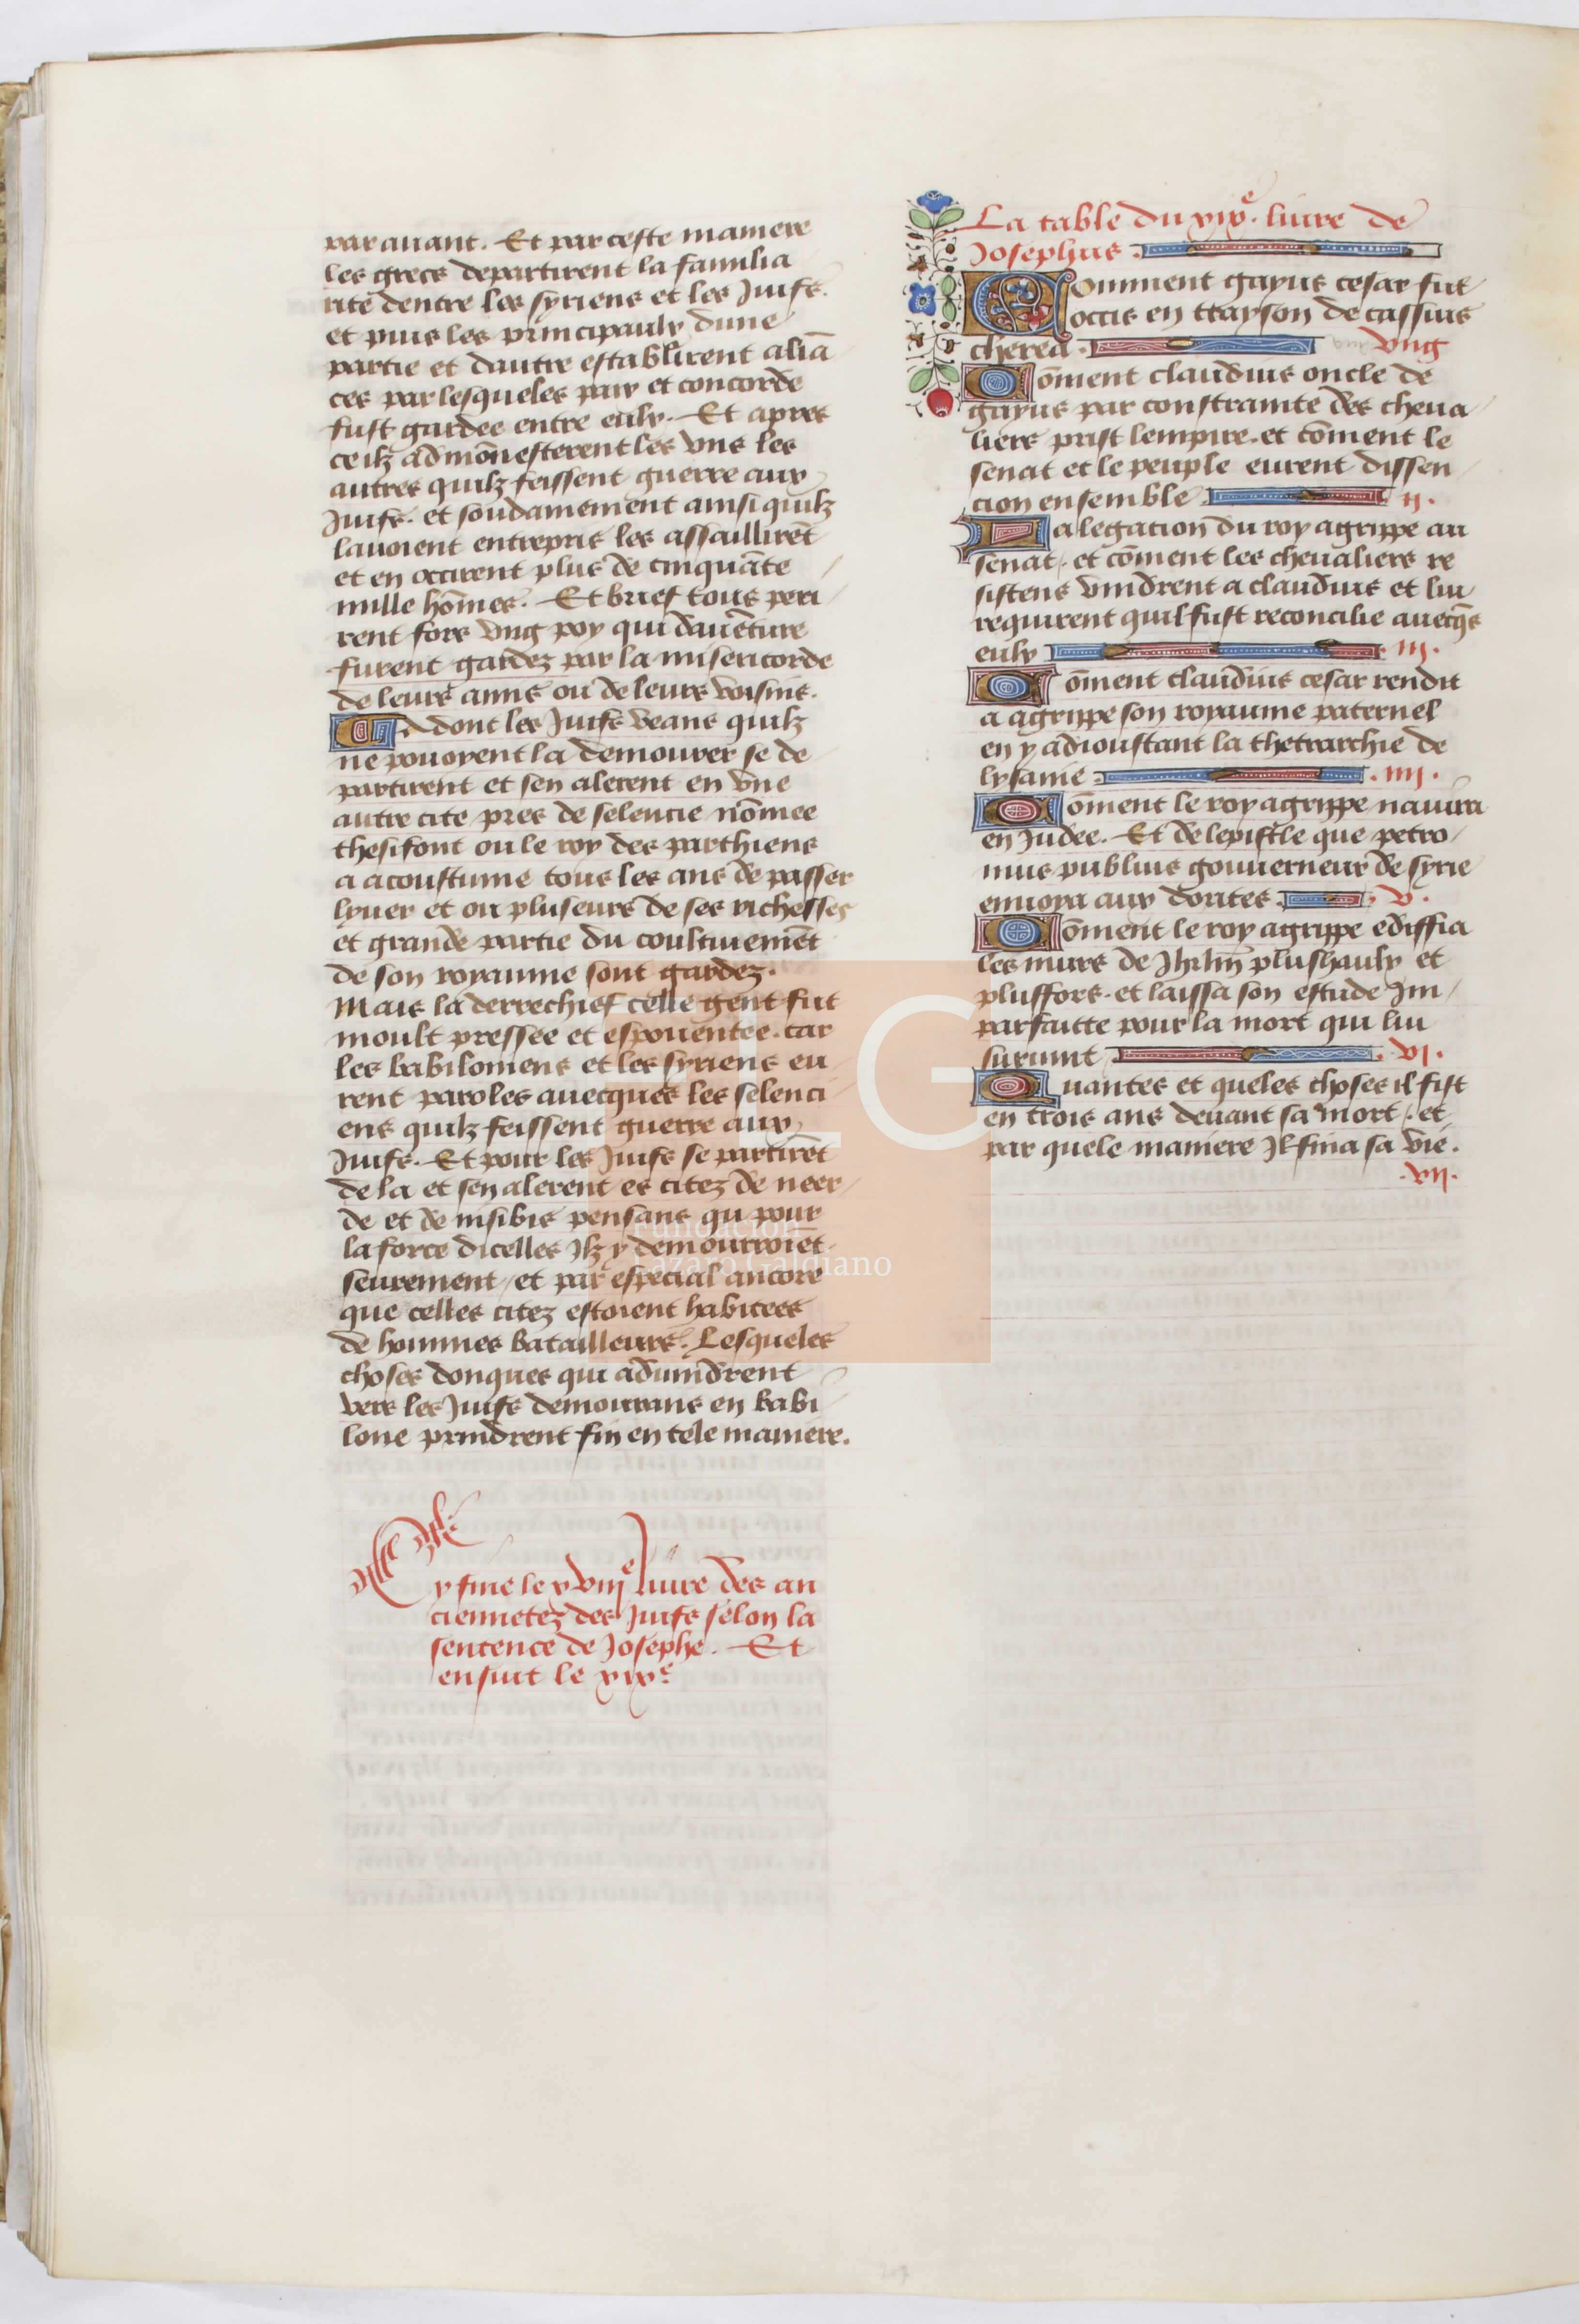 par auant. Et par ceste maniere
les grecs departirent la familia
rite dentre les syriens et les Juifs.
et puis les principaulx dune
partie et dautre establirent aliā
ces par lesqueles paix et concorde
fust gardee entre eulx. Et apres
ce ilz admōnesterent les vns les
autres quilz feissent guerre aux
Juifs. et soudainement ainsi quilz
lauoient entrepris les assaillirēt
et en occirent plus de cinquāte
mille hōmes. Et brief tous peri
rent fors vng poy qui dauēture
furent gardez par la misericorde
de leurs amis ou de leurs voisins.
Adont les Juifs veans quilz
ne pouoyent la demourer se de
partirent et sen alerent en vne
autre cite pres de seleucie nōmee
thesifont ou le roy des parthiens
a acoustume tous les ans de passer
lyuer et ou pluseurs de ses richesses
et grande partie du coultiuemēt
de son royaume sont gardez.
Mais la derrechief celle gent fut
moult pressee et espouentee. car
les babiloniens et les syriens eu
rent paroles auecques les seleuci
ens quilz feissent guerre aux
Juifs. Et pour les Juifs se partirēt
de la et sen alerent es citez de neer
de et de nisibis pensans qu pour
la force dicelles Ilz y demourroiēt
seurement / et par especial ancore
que celles citez estoient habitees
de hommes batailleurs. Lesqueles
choses donques qui aduindrent
vers les Juifs demourans en babi
lone prindrent fin en tele maniere.
Cy fine le xviijᵉ liure des an
ciennetez des Juifs selon la
sentence de Josephe. Et
ensuit le xixᵉ
La table du xixᵉ. liure de
Josephus.
Comment gayus cesar fut
occis en trayson de cassius
cherea. vng
Cōment claudius oncle de
gayus par constrainte des cheua
liers prist lempire. et cōment le
senat et le peuple eurent dissen
cion ensemble ij.
La legacion du roy agrippe au
senat. et cōment les cheualiers re
sistens vindrent a claudius et lui
requirent quil fust reconcilie auecqs
eulx iij.
Cōment claudius cesar rendit
a agrippe son royaume paternel
en y adioustant la thetrarchie de
lysanie. iiij.
Cōment le roy agrippe nauira
en Judee. Et de lepistle que petro
nius publius gouuerneur de syrie
enuoya aux dorites. v.
Cōment le roy agrippe ediffia
les murs de Jhrlm̄ plushaulx et
plusfors. et laissa son estude Im
parfaitte pour la mort qui lui
suruint. vj.
Quantes et queles choses il fist
en trois ans deuant sa mort / et
par quele maniere Il fina sa vie.
.vij.
LG
Fundación
Lázaro Galdiano